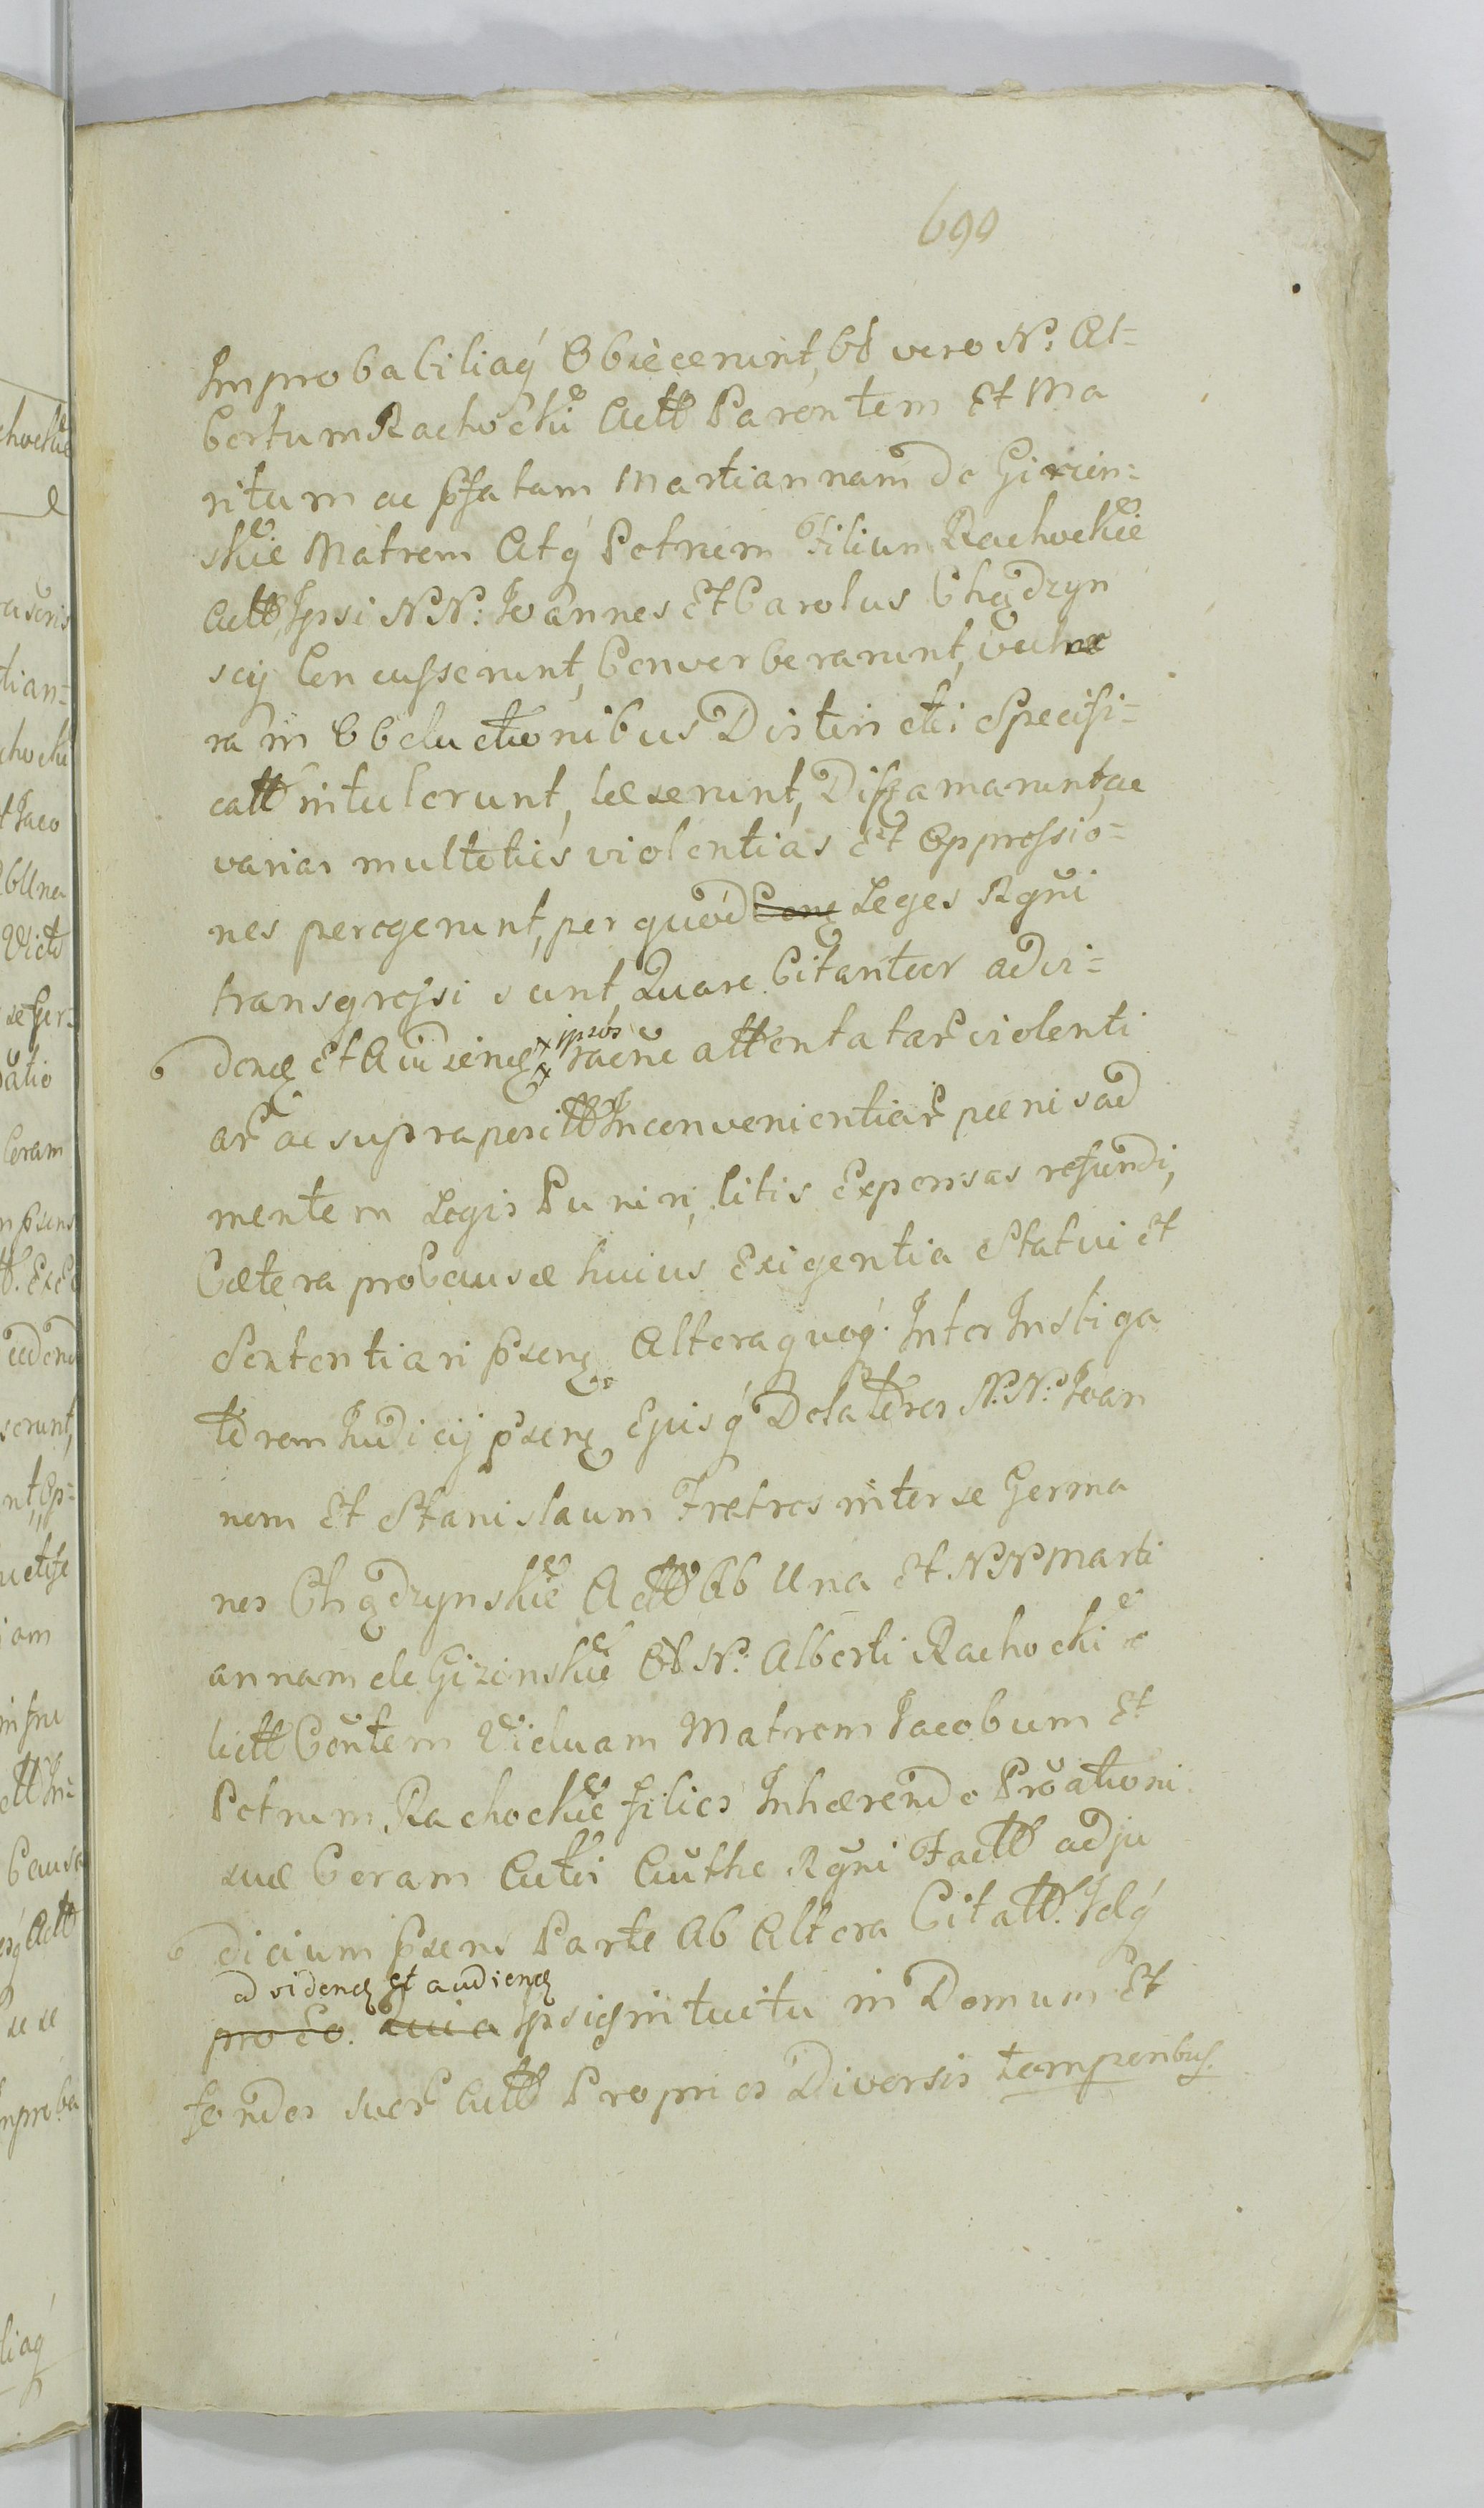 690
Improbabiliaq́ Obiecerunt, Od vero N: Al=
bertum Rachocki Actt Parentem Et Ma
ritum ac p̃fatam Martiannam de Girzin=
skie Matrem Atq́ Petrum Filium Rachockie
Actt, Ipsi NN: Ioannes Et Carolus Chądzyn
scy Concusserunt, Converberarunt, vulne
ra in Obductionibus Distincti Specifi=
catt intulerunt, læserunt, Diffamarunt, ac
varias multoties violentias Et Oppressio=
nes peregerunt, per quod Leges Rgñi
transgressi sunt, Quare Citantur advi=
dend Et Audiend ipsos raõne attentatar̃ violenti
ar̃ ac supraposítt Inconvenientiar̃ pænis ad
mentem Legis Puniri, litis Expensas refundi,
Cætera pro Causæ huius Exigentia Statui Et
Sententiari p̃sent. Altera quoq́ Inter Instiga
torem Iudicij p̃sent Ejusq́ Delatores N.N: Ioan
nem Et Stanislaum Fratres inter se Germa
nos Chądzynskie Actt Ab Una Et NN Marti
annam de Girzinskie Od N: Alberti Rachocki
lictt Cõntem Viduam Matrem Iacobum Et
Petrum Rachockie filios Inhærendo Prõationi
suæ Coram Actis Cũthe Rgñi Factt adju
dicium p̃sens Parte Ab Altera Citatt. Idq́
ad vidend et audiend
pro Eo. Quia Ipsi in tuitu in Domum Et
fundos suor̃ Actt Proprios Diversis temporibus